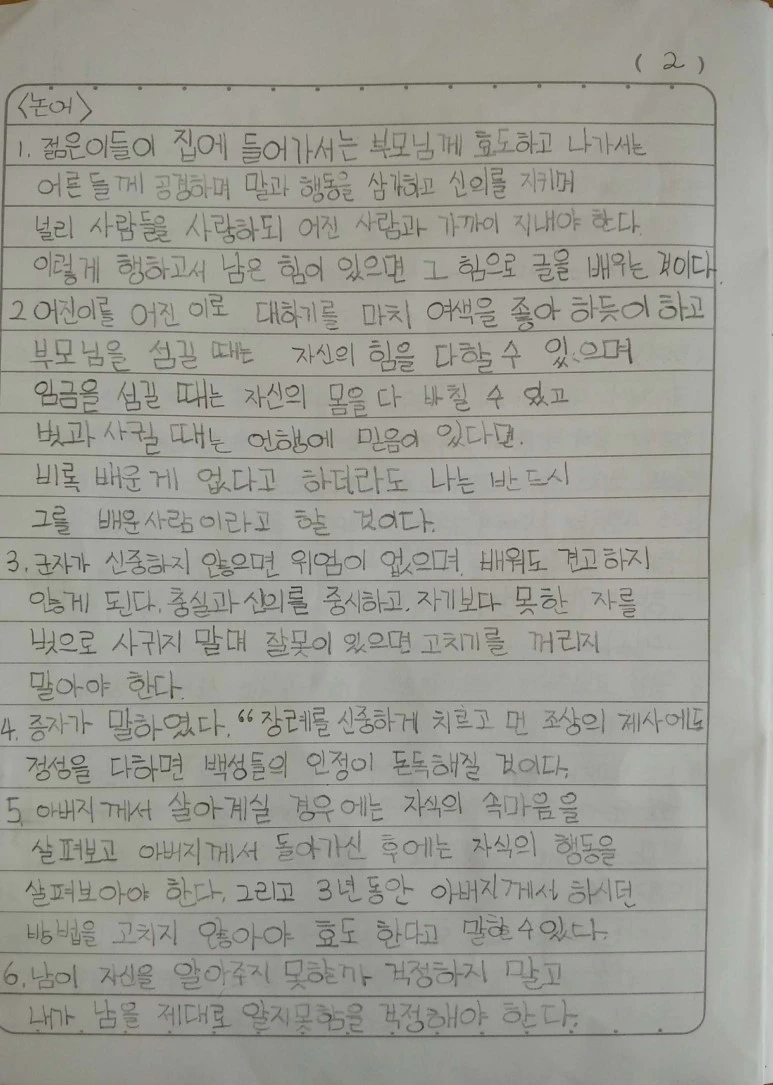 ( 2 )
<논어>
1. 젊은이들이 집에 들어가서는 부모님께 효도하고 나가서는
어른들께 공경하며 말과 행동을 삼가하고 신의를 지키며
널리 사람들을 사랑하되 어진 사람과 가까이 지내야 한다.
이렇게 행하고서 남은 힘이 있으면 그 힘으로 글을 배우는 것이다.
2 어진이를 어진 이로 대하기를 마치 여색을 좋아 하듯이 하고
부모님을 섬길 때는 자신의 힘을 다할 수 있으며
임금을 섬길 때는 자신의 몸을 다 바칠 수 있고
벗과 사귈 때는 언행에 믿음이 있다면.
비록 배운 게 없다고 하더라도 나는 반드시
그를 배운 사람이라고 할 것이다.
3. 군자가 신중하지 않으면 위엄이 없으며, 배워도 견고하지
않게 된다. 충실과 신의를 중시하고. 자기보다 못한 자를
벗으로 사귀지 말며 잘못이 있으면 고치기를 꺼리지
말아야 한다.
4. 증자가 말하였다. “장례를 신중하게 치르고 먼 조상의 제사에도
정성을 다하면 백성들의 인정이 돈독해질 것이다.
5. 아버지께서 살아계실 경우에는 자식의 속마음을
살펴보고 아버지께서 돌아가신 후에는 자식의 행동을
살펴보아야 한다. 그리고 3년 동안 아버지께서 하시던
방법을 고치지 않아야 효도 한다고 말할 수 있다.
6. 남이 자신을 알아주지 못할까 걱정하지 말고
내가 남을 제대로 알지못함을 걱정해야 한다.